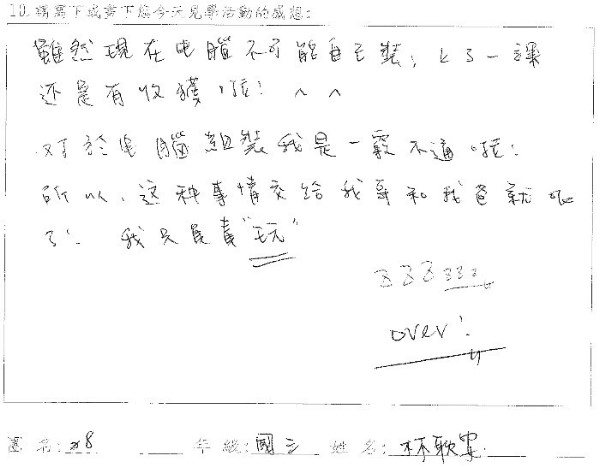 10.請寫下或畫下您今天見學活動的感想:
雖然現在电腦不可能自己裝, 上了一課
还是有收獲啦! ^ ^
对於电腦組裝我是一竅不通啦!
所以, 这种事情交給我哥和我爸就呢
了! 我只負責"玩"
ㄋㄋㄋㄋㄋㄋ
over!
名: 28 年 級: 國三 姓 名: 林歆